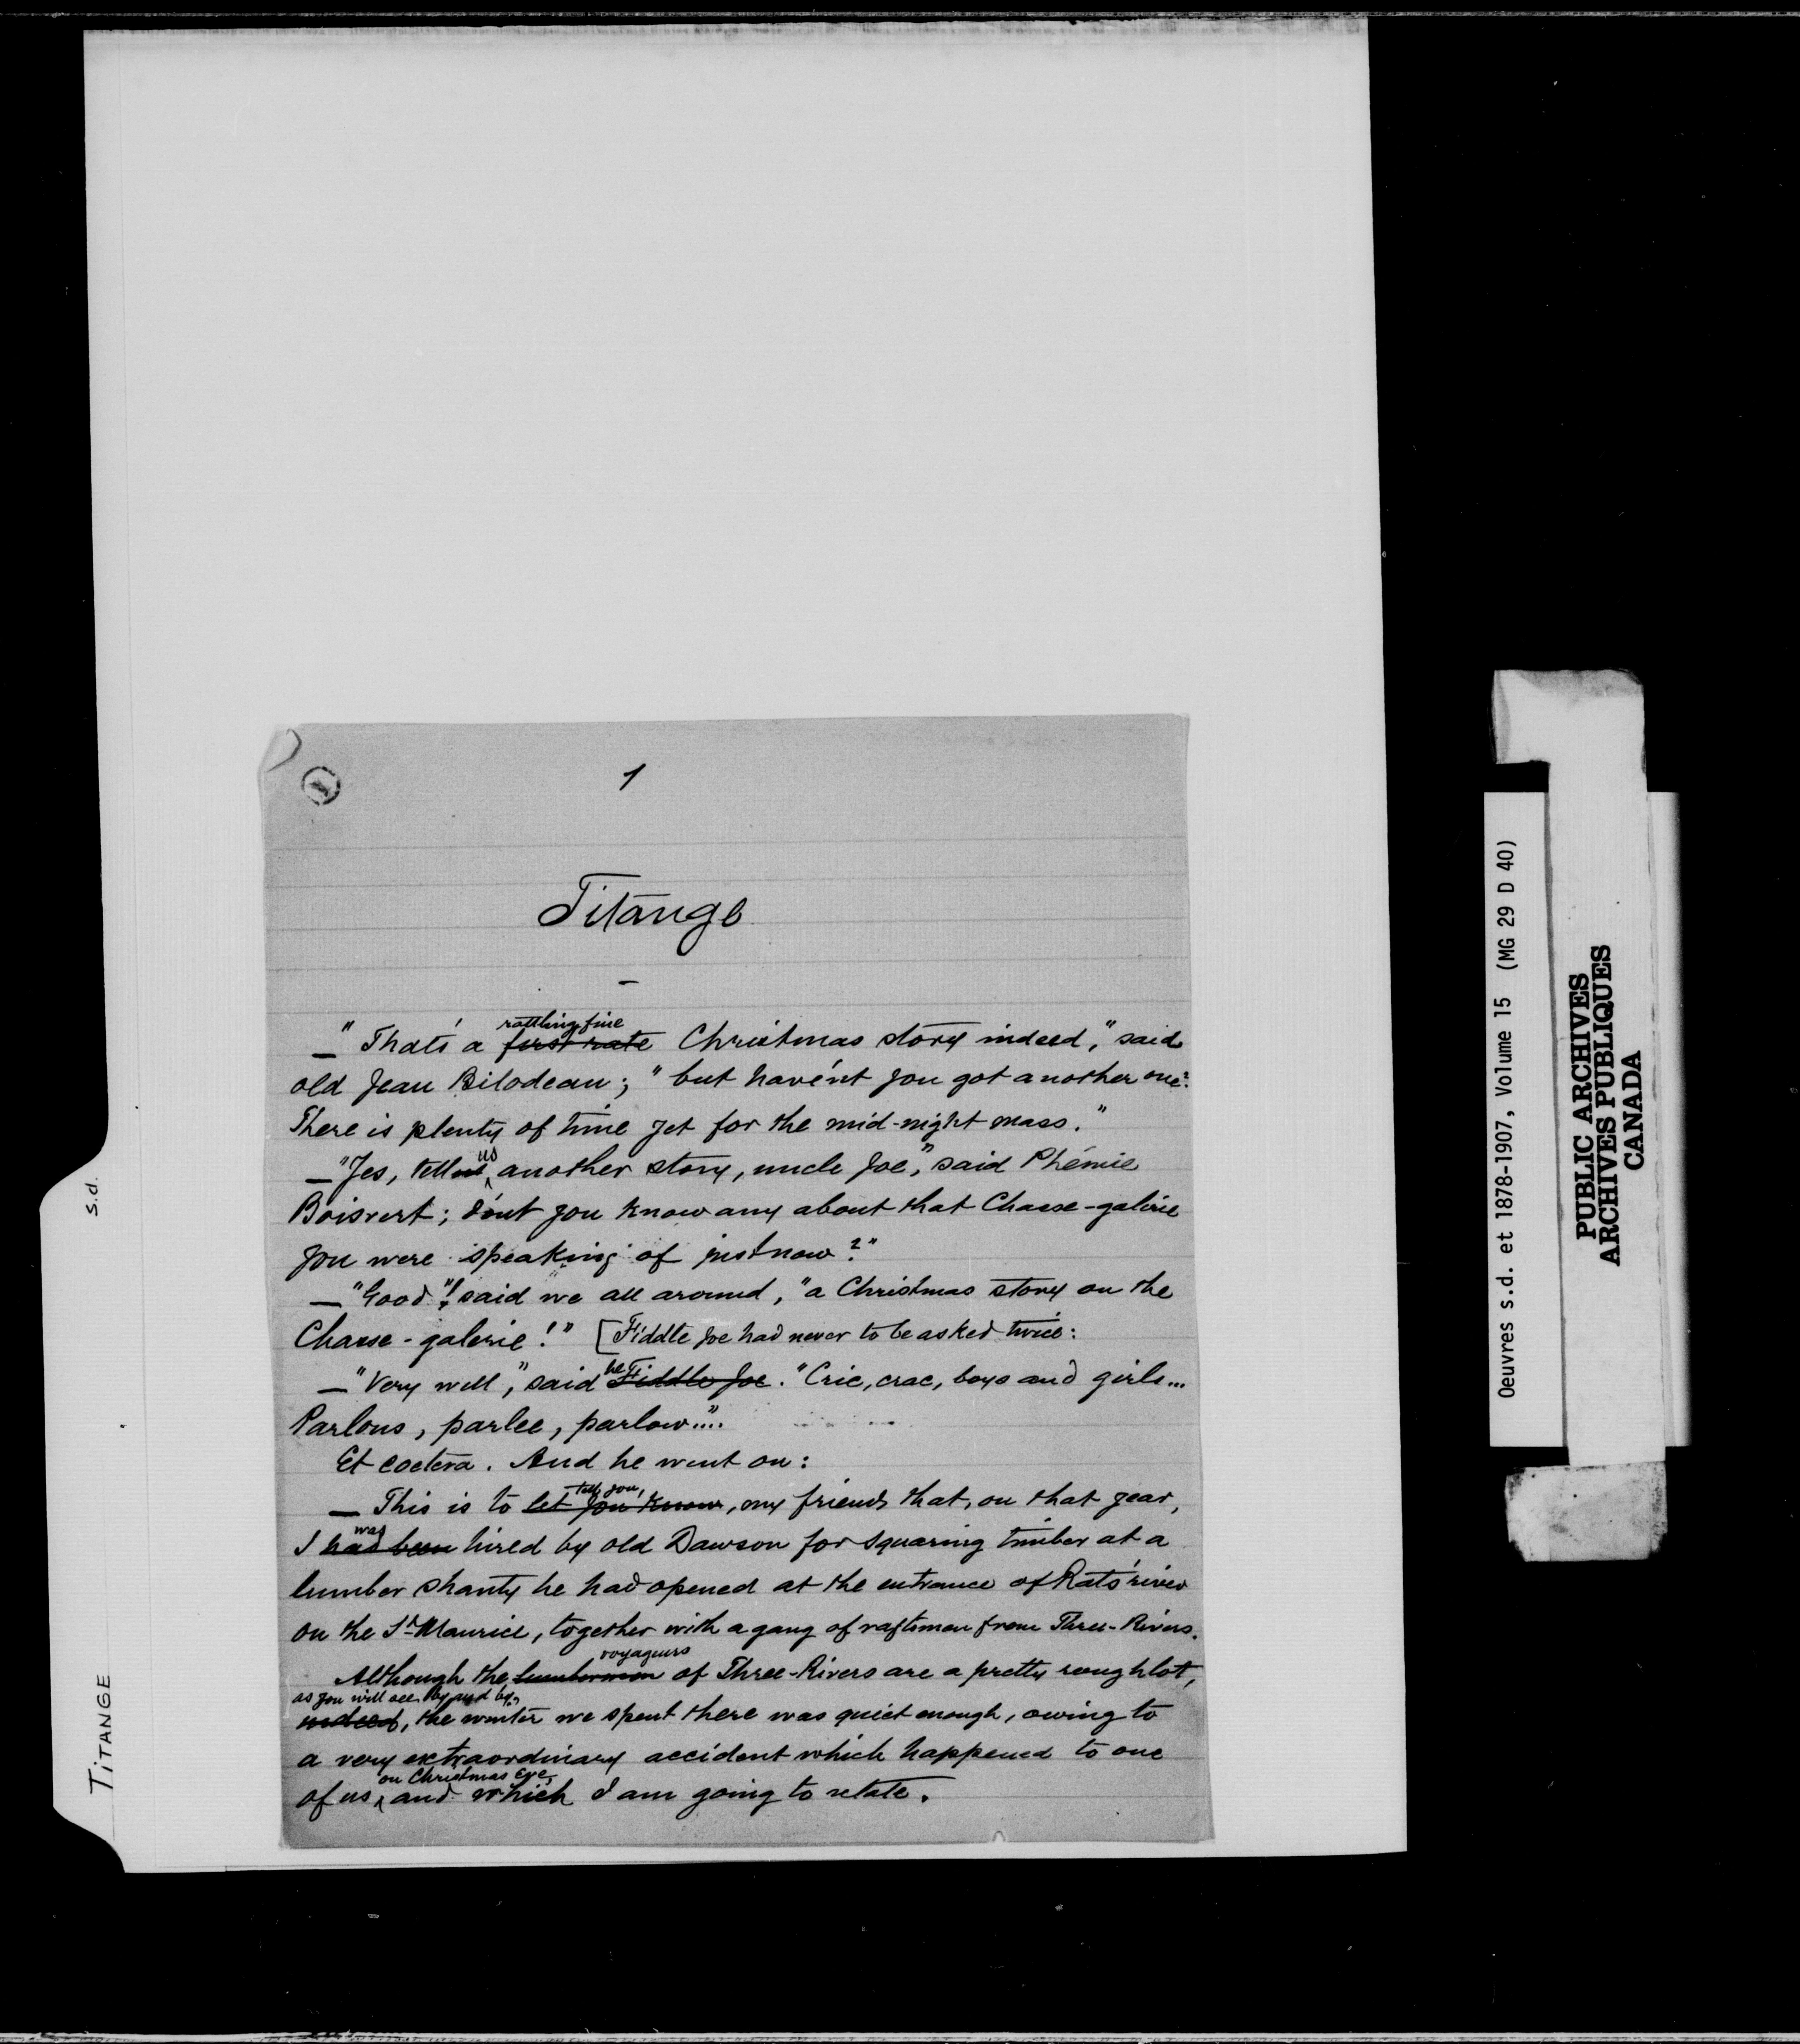 1
1
Titange
—"That's a rattling fine first rate Christmas story indeed," said
old Jean Bilodeau; "but have'nt you got another one?
There is plenty of time yet for the mid-night mass."
—"Yes, tell us another story, uncle Joe," said Phémie
Boisvert; do'nt you know any about that Chasse-galerie
you were speaking of just now?"
—"Good"! said we all around, "a Christmas story on the
Chasse-galerie!" [Fiddle Joe had never to be asked twice:
—"Very well," said he Fiddle Joe. "Cric, crac, boys and girls...
Parlons, parlee, parlow"....
Et coetera. And he went on:
— This is to tell you, let you know, my friends that, on that year,
I was had been hired by old Dawson for squaring timber at a
lumber shanty he had opened at the entrance of Rats' river
on the St Maurice, together with a gang of raftsmen from Three-Rivers.
Although the voyageurs lumbermen of Three-Rivers are a pretty rough lot,
as you will see by and by, indeed, the winter we spent there was quiet enough, owing to
a very extraordinary accident which happened to one
of us on Christmas Eve, and which I am going to relate.
TITANGE
s.d.
Oeuvres s.d. et 1878-1907, Volume 15 (MG 29 D 40)
PUBLIC ARCHIVES
ARCHIVES PUBLIQUES
CANADA